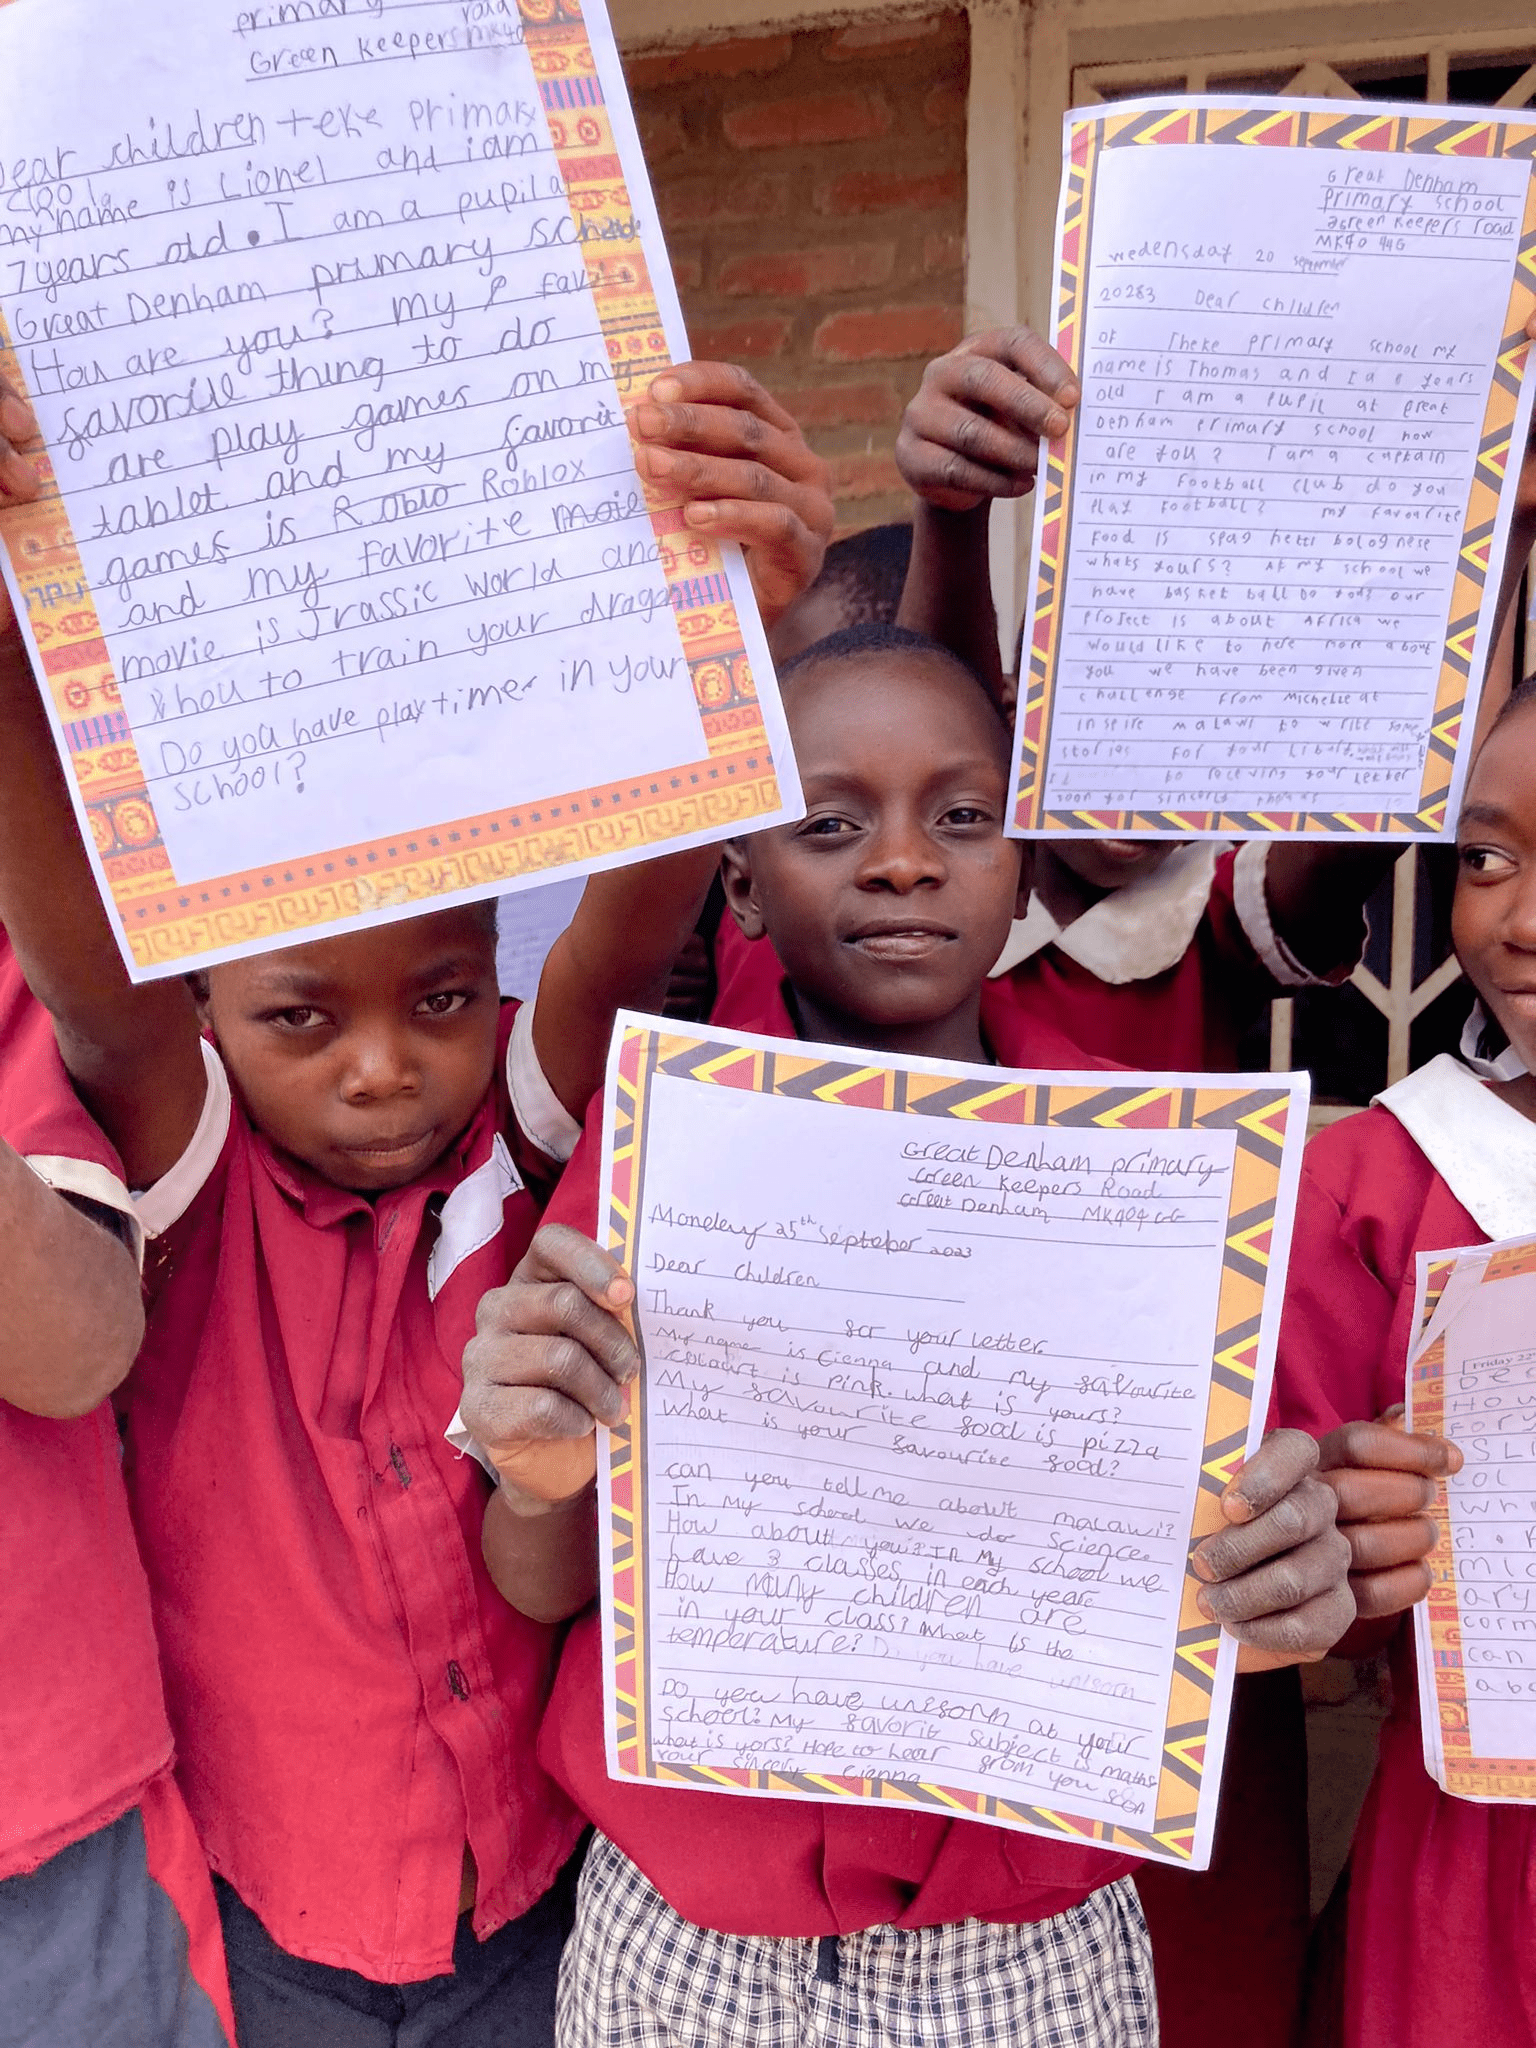 primary
road
Green Keepers MK40
Dear children teke primary
my name is Lionel and i am
7 years old. I am a pupil a
Great Denham primary
How are you? my favi
favorite thing to do
are play games on my
tablet and my favorit
games is Roblo Roblox
and my favorite
movie is Jrassic world and
hou to train your dragon
Do you have playtimer in your
school?
Great Denham
Primary school
Green Keepers road
MK40 44G
Wedensday 20 September
20283 Dear children
of Theke primary school my
name is Thomas and I a years
old I am a pupil at great
Denham primary school how
are you? I am a captain
in my football club do you
play football? my favourite
food is spag hetti bolognese
whats yours? At my school we
have basket ball Do you? our
project is about Africa we
would like to here more about
you we have been given
challenge from Michelle at
inspire malawi to write some
stories for your
to receving your letter
soon
Great Denham primary
Green Keepers Road
Great Denham MK40 4GG
Monday 25th September 2023
Dear children
Thank you for your letter.
My name is Cienna and my favourite
colour is pink. what is yours?
My favourite food is pizza
What is your favourite food?
can you tell me about malawi?
In my school we do science.
How about you? In My school we
have 3 classes in each year
How many children are
in your class? What is the
temperature? Do you have uniform
Do you have uniform at your
school? My favorit subject is maths
what is yors? Hope to hear from you soon
your sincerly Cienna
Friday 22
De
Hou
for y
SLi
col
wh
mic
ary
corm
can
abo